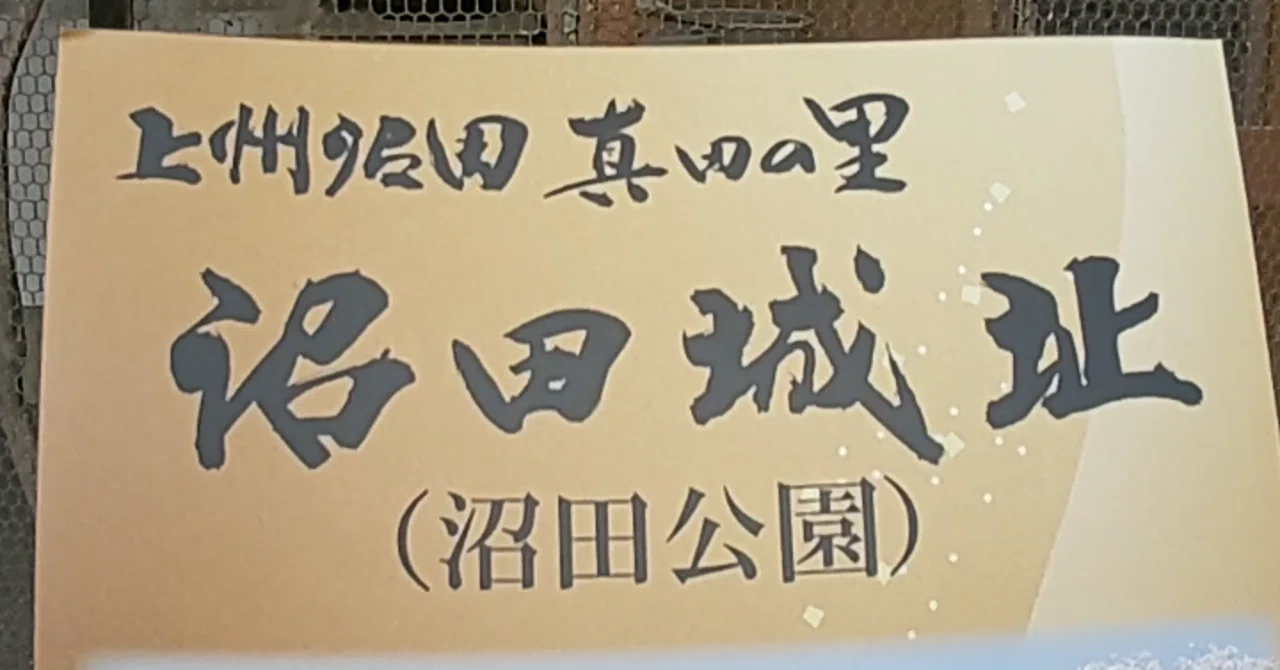 上州沼田 真田の里
沼田城址
(沼田公園)